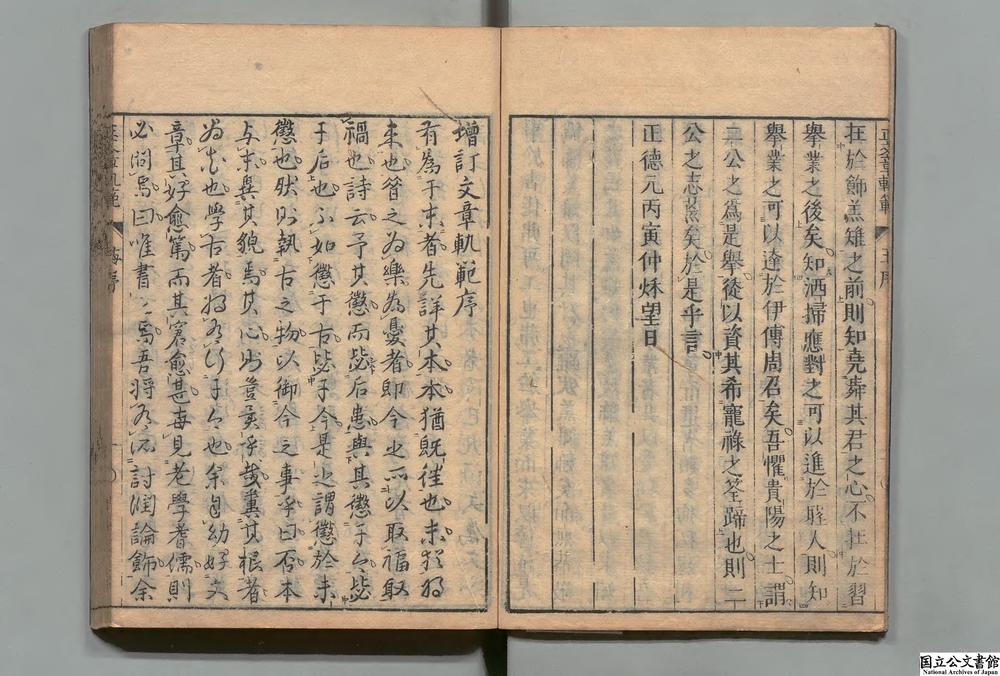 在於飾羔雉之前則知堯舜其君之心不在於習
舉業之後矣知洒掃應對之可以進於聖人則知
舉業之可以達於伊傅周召矣吾懼貴陽之士謂
二公之為是舉從以資其希寵祿之筌蹄也則二
公之志荒矣於是乎言
正德元丙寅仲秌望日
增訂文章軌範序
有為于末者先詳其本本猶既往也末猶將
來也管之為樂為憂者即今之所以取福取
禍也詩云予其懲而毖后患與其懲于今毖
于后也不如懲于古毖于今是之謂懲於未
懲也然則執古之物以御今之事乎曰否本
與末異其貌焉其心
為志也學古者將有行于今也余自幼好文
章其好愈篤而其窘愈甚每見老學耆儒則
必問焉曰唯書焉吾將有沉討潤論飾余
國立公文書館
National Archives of Japan